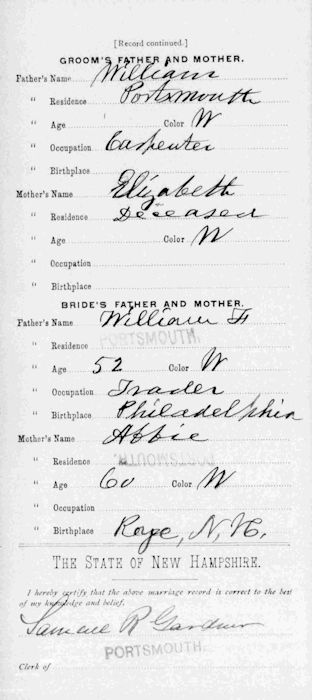 [Record continued.]
GROOM'S FATHER AND MOTHER.
Father's Name William
" Residence Portsmouth
" Age Color W
" Occupation Carpenter
" Birthplace
Mother's Name Elizabeth
" Residence Deceased
" Age Color W
" Occupation
" Birthplace
BRIDE'S FATHER AND MOTHER.
Father's Name William H
" Residence PORTSMOUTH.
" Age 52 Color W
" Occupation Trader
" Birthplace Philadelphia
Mother's Name Abbie
" Residence PORTSMOUTH.
" Age 60 Color W
" Occupation
" Birthplace Rye, N, H.
THE STATE OF NEW HAMPSHIRE.
I hereby certify that the above marriage record is correct to the best
of my knowledge and belief.
Samuel R Gardner
Clerk of PORTSMOUTH.